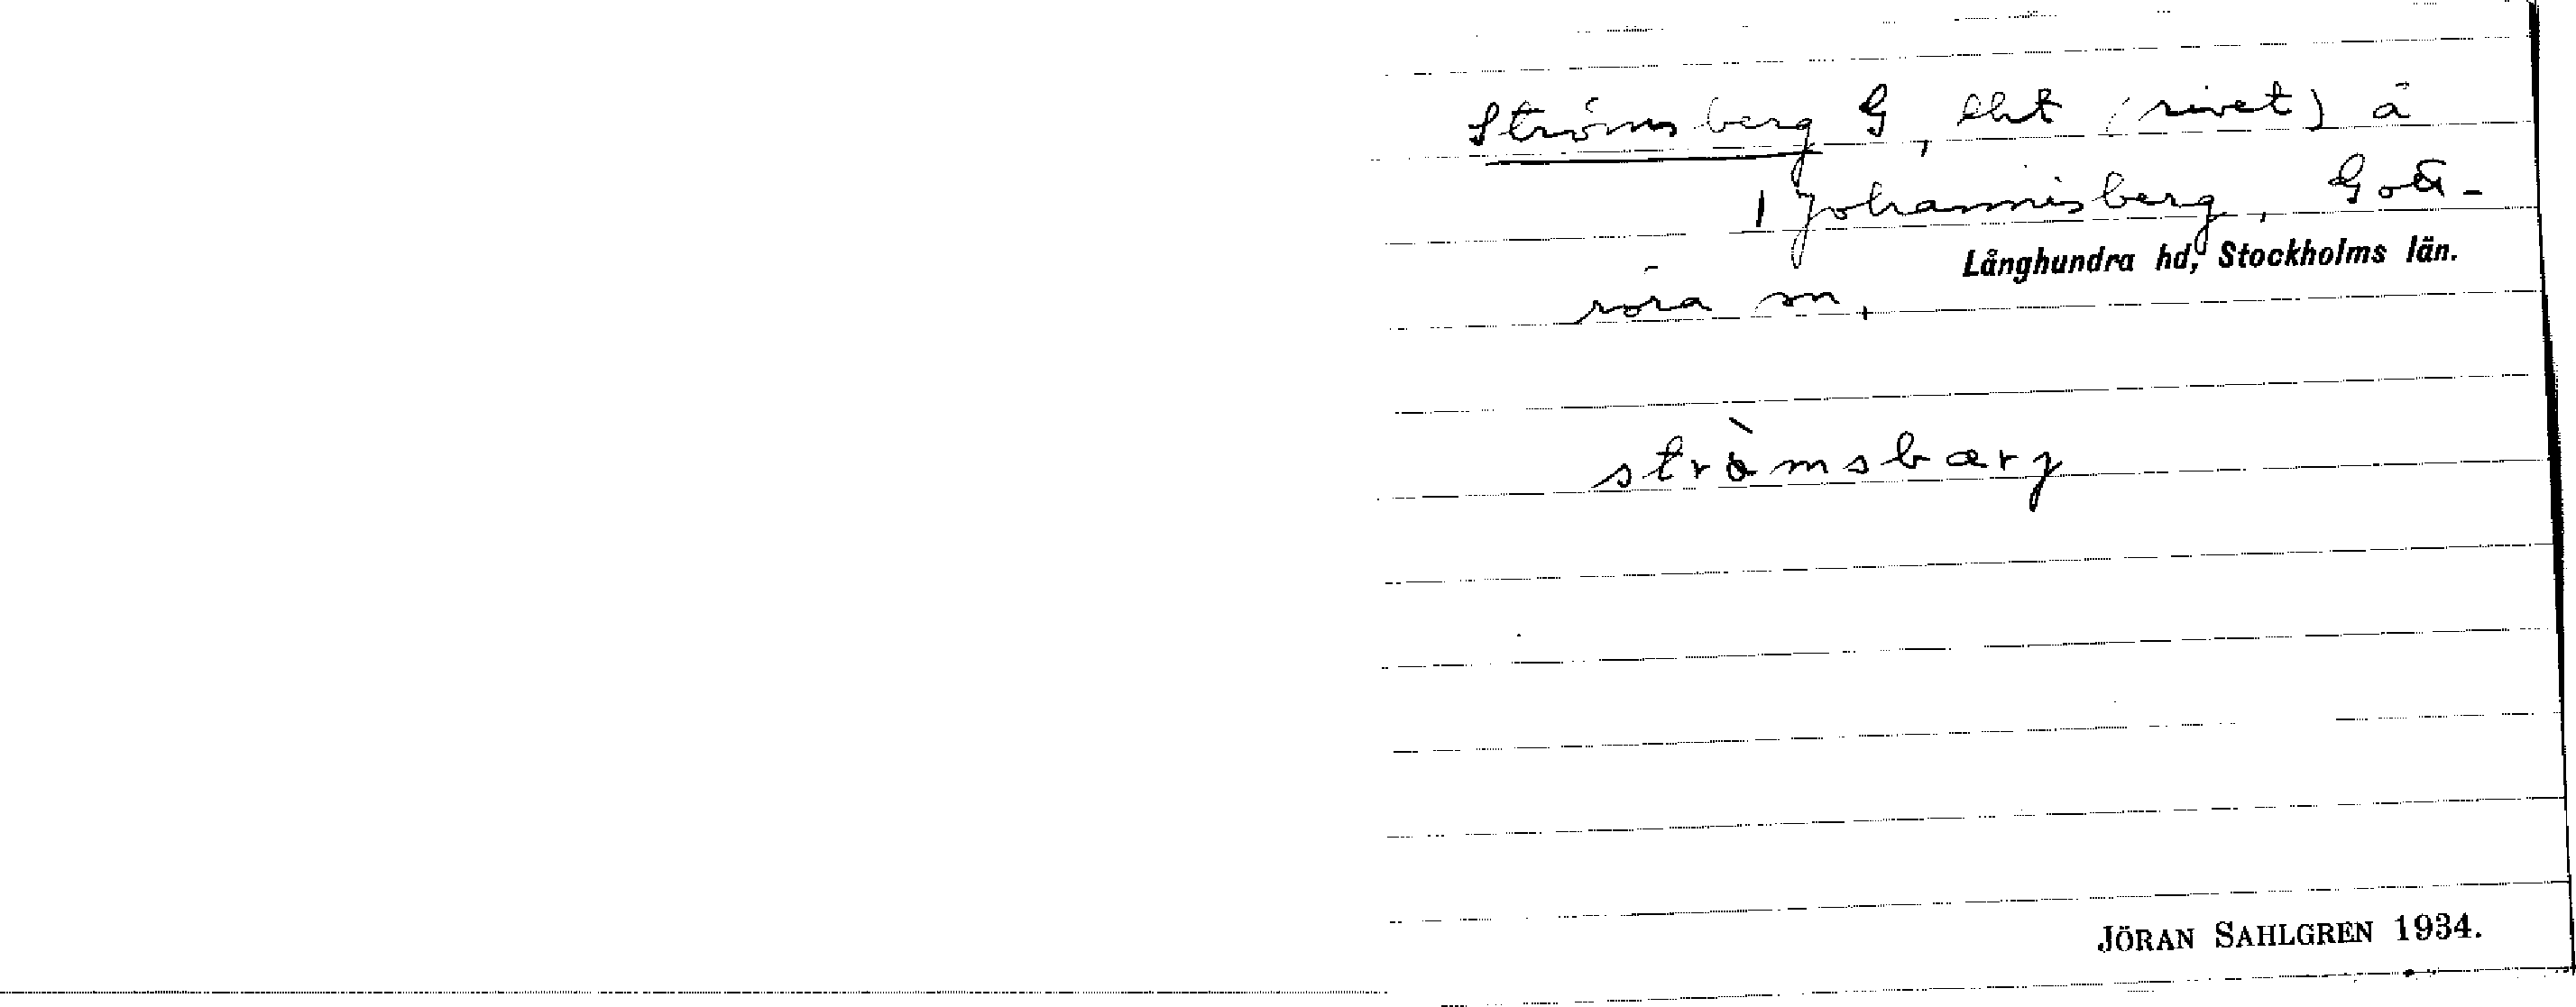 Strömsberg G, lht (rivet) å
1 Johannisberg, Gott-
Långhundra hd, Stockholms län.
röra sn.
strömsbærj
JÖRAN SAHLGREN 1934.